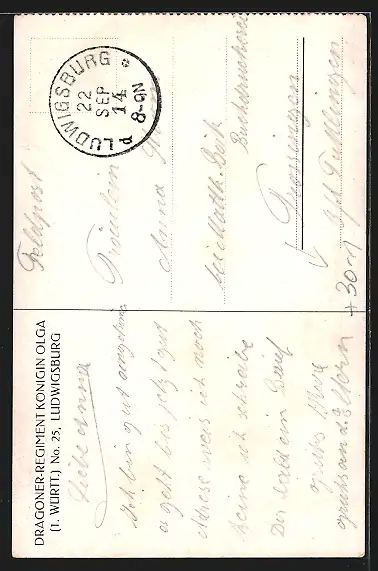 DRAGONER-REGIMENT KÖNIGIN OLGA
(I. WÜRTT.) No. 25, LUDWIGSBURG
Liebe Anna
Ich bin gut angekomm
es geht bis jetzt gut
Adrese weis ich noch
keine ich schreibe
Dir bald ein Brief
grus
grus an d. Eltern
Feldpost
LUDWIGSBURG
22
SEP
14
8-9N
Fräulein
Anna
bei Math. Beck
Buchdruckerei
Trossingen
O/A Tuttlingen
+30-